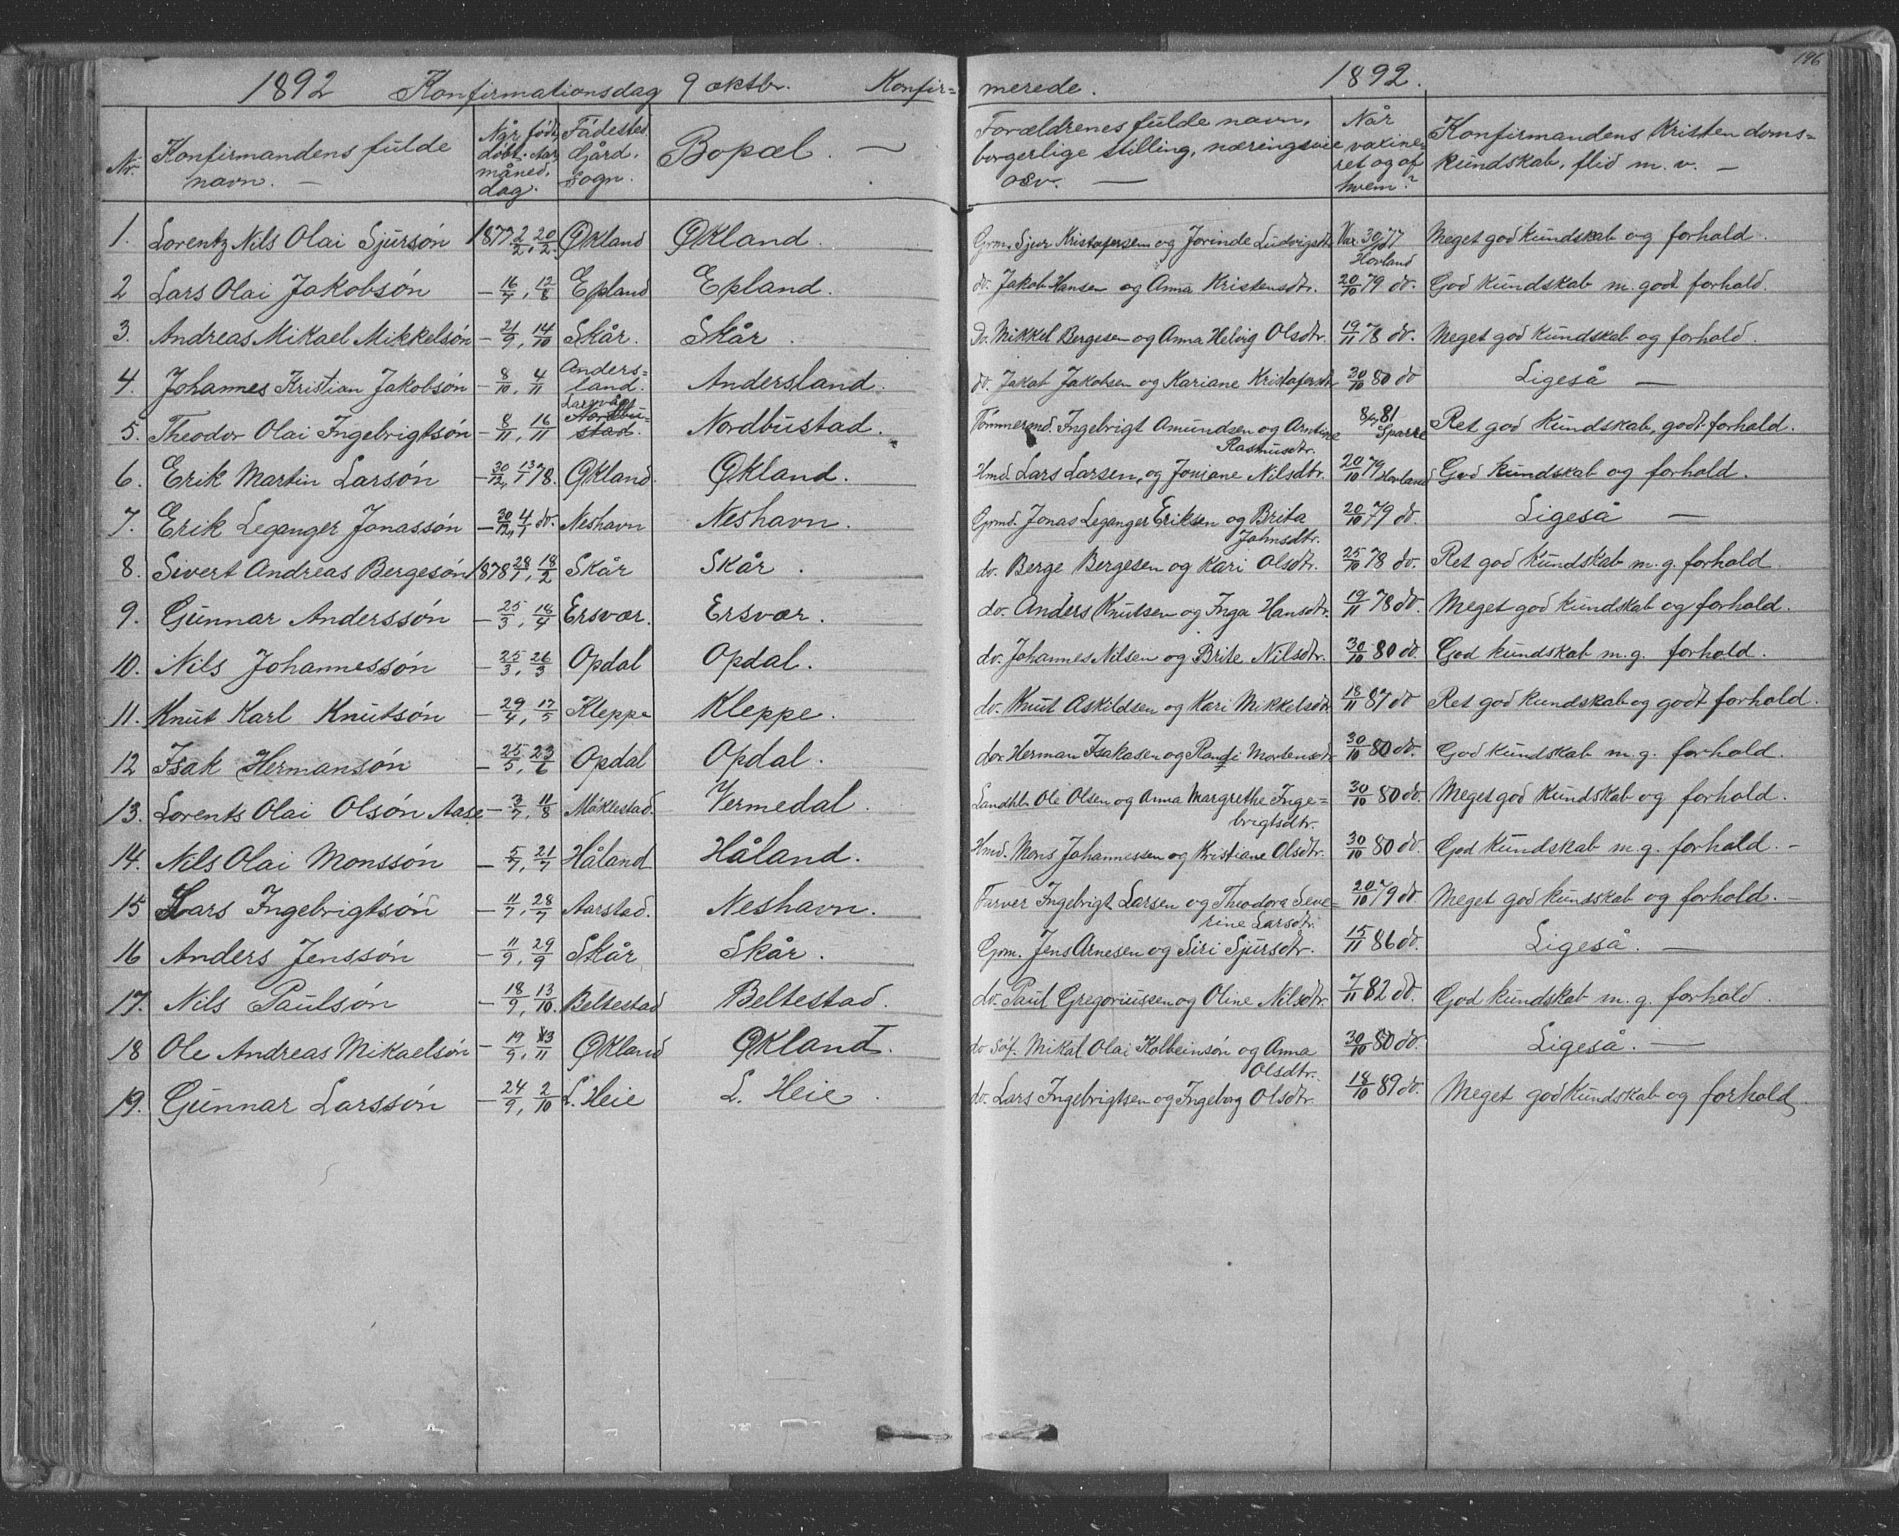 1892 Konfirmationsdag 9 oktbr. Konfir= merede. 1892. 196
Nr. Konfirmandens fulde navn. — Når født, døbt. aar, måned, dag. Fødested. Gård, sogn. Bopæl. — Forældrenes fulde navn, borgerlige stilling, næringsvei osv. — Når vaxineret og af hvem? Konfirmandens Kristendoms= kundskab, flid m. v. —
1. Lorentz Nils Olai Sjursón 1877 2/2, 20/2 Økland Økland. Grm. Sjur Kristofersen og Jorinde Ludvigsdtr. Vax. 30/10 77 Hovland Meget god kundskab og forhold.
2 Lars Olai Jakobsón — 16/7, 12/8 Epland Epland. do. Jakob Hansen og Anna Kristensdtr. 20/10 79 do. God kundskab m. godt forhold.
3. Andreas Mikael Mikkelsón — 21/9, 14/10 Skår. Skår. do. Mikkel Bergesen og Anna Helvig Olsdtr. 19/11 78 do. Meget god kundskab og forhold.
4. Johannes Kristian Jakobsón — 8/10, 4/11 Anders= land. Andersland. do. Jakob Jakobsen og Kariane Kristofersdtr. 30/10 80 do Ligeså —
5. Theodor Olai Ingebrigtsón — 8/11, 16/11 Nordbu= stad. Nordbustad. Tømmermd. Ingebrigt Amundsen og Amtine Rasmusdtr. 81 Sparre Ret god kundskab, godt forhold.
6. Erik Martin Larsón — 30/12, 13/1 78. Økland. Økland. Hmd. Lars Larsen, og Joniane Nilsdtr. 20/10 79 Hovland God kundskab og forhold.
7. Erik Leganger Jonassón — 30/12, 4/1 do. Neshavn Neshavn. Grmd. Jonas Leganger Eriksen og Brita Johnsdtr. 20/10 79 do. Ligeså —
8. Sivert Andreas Bergesón 1878 28/1, 18/2 Skår Skår. do. Berge Bergesen og Kari Olsdtr. 25/10 78 do. Ret god kundskab m. g. forhold.
9. Gunnar Anderssón — 25/3, 18/4 Ersvær. Ersvær. do. Anders Knutsen og Inga Hansdtr. 19/11 78 do. Meget god kundskab og forhold.
10. Nils Johannessón — 25/3, 26/3 Opdal Opdal. do. Johannes Nilsen og Brite Nilsdtr. 30/10 80 do. God kundskab m. g. forhold.
11. Knut Karl Knutsón — 29/4, 17/5 Kleppe Kleppe. do. Knut Askildsen og Kari Mikkelsdtr. 18/11 87 do Ret god kundskab og godt forhold.
12 Isak Hermansón — 25/5, 23/6 Opdal Opdal. do. Herman Isaksen og Randi Mortensdtr. 30/10 80 do. God kundskab m. g. forhold.
13. Lorents Olai Olsón Aase — 3/7, 11/8 Møklestad. Vermedal. Landhl. Ole Olsen og Anna Margrethe Inge= brigtsdtr. 30/10 80 do. Meget god kundskab og forhold.
14. Nils Olai Monssón — 5/7, 21/7 Håland Håland. Hmd. Mons Johannessen og Kristiane Olsdtr. 30/10 80 do. God kundskab m. g. forhold. —
15 Lars Ingebrigtsón — 11/7, 28/7 Aarstad. Neshavn. Farver Ingebrigt Larsen og Theodora Seve= rine Larsdtr. 20/10 79 do Meget god kundskab og forhold. —
16 Anders Jenssón — 11/9, 29/9 Skår Skår. Grm. Jens Arnesen og Siri Sjursdtr. 15/11 86 do. Ligeså. —
17. Nils Paulsón — 18/9, 13/10. Beltestad Beltestad. do. Paul Gregoriussen og Oline Nilsdtr. 7/11 82 do. God kundskab m. g. forhold.
18 Ole Andreas Mikaelsón — 19/9, 13/11 Økland Økland. do Søf. Mikal Olai Kolbeinsón og Anna Olsdtr. 30/10 80 do. Ligeså. —
19. Gunnar Larssón — 24/9, 2/10 L. Heie L. Heie. do. Lars Ingebrigtsen og Ingeborg Olsdtr. 18/10 89 do. Meget god kundskab og forhold,